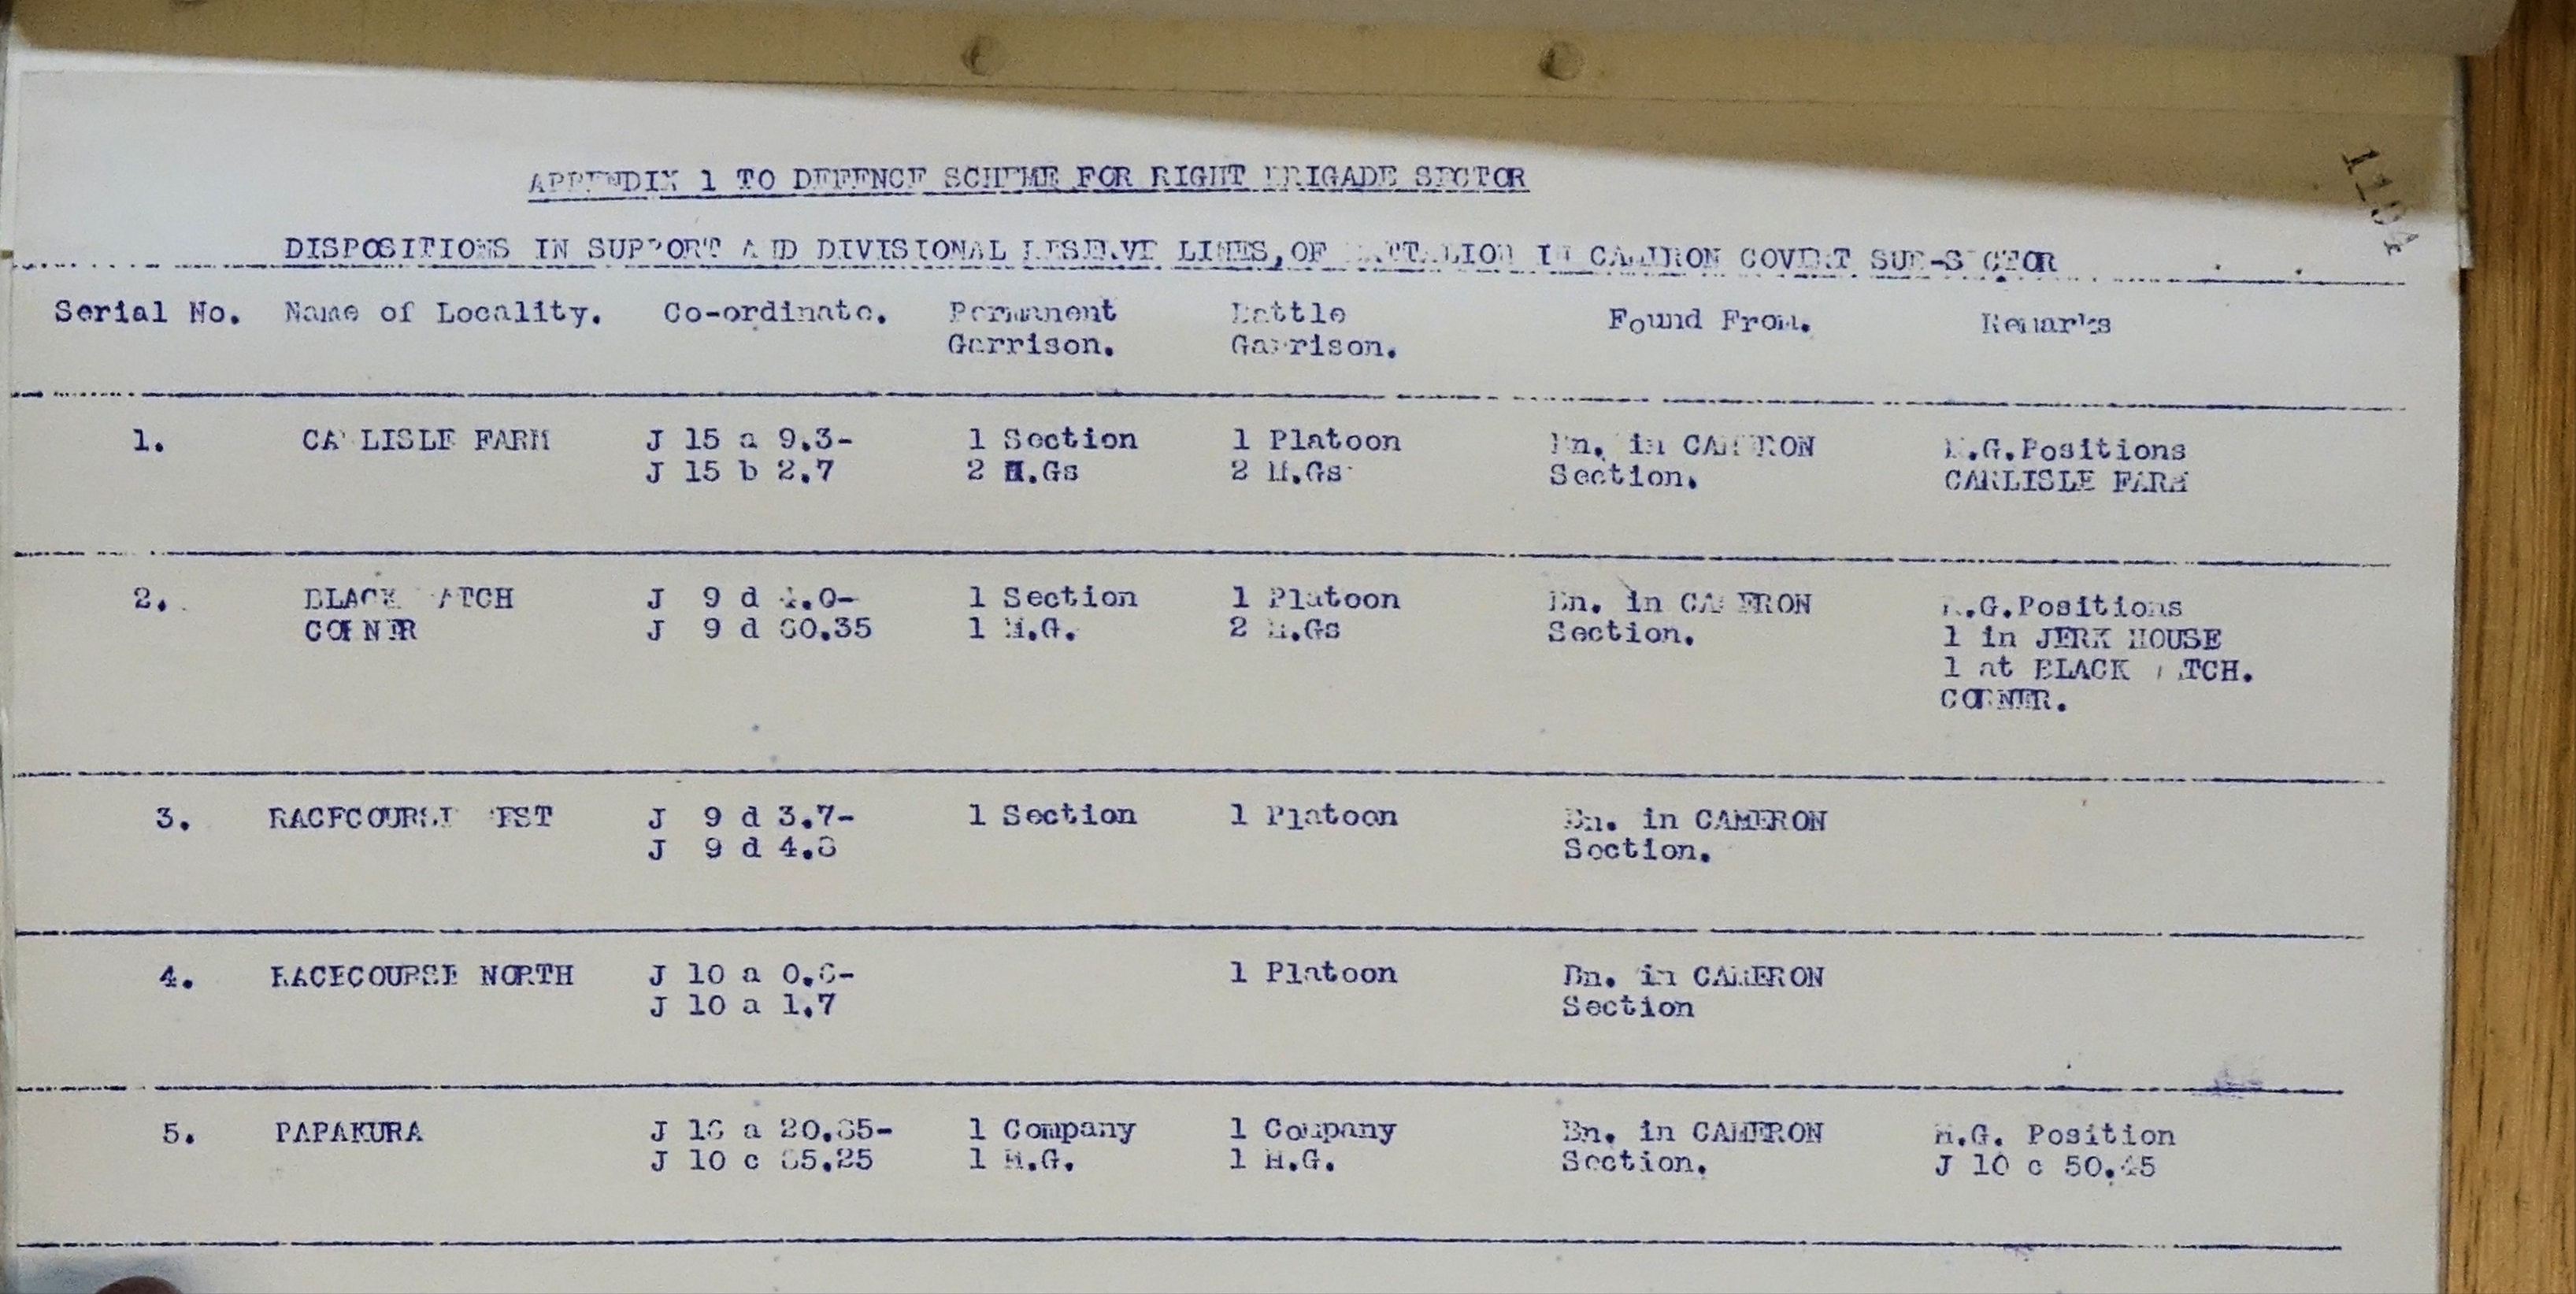 1194
APPENDIX 1 TO DEFENCE SCHEME FOR RIGHT BRIGADE SECTOR
DISPOSITIONS IN SUPPORT AND DIVISIONAL RESERVE LINES, OF BATTALION IN CAMERON COVERT SUB-SECTOR
Serial No. Name of Locality. Co-ordinate. Permanent Garrison. Battle Garrison. Found From. Remarks
1. CARLISLE FARM J 15 a 9.3- 1 Section 1 Platoon Bn. in CAMERON M.G.Positions
J 15 b 2.7 2 M.Gs 2 M.Gs Section. CARLISLE FARM
2. BLACK WATCH J 9 d 0- 1 Section 1 Platoon Bn. in CAMERON M.G.Positions
CORNER J 9 d 35 1 M.G. 2 M.Gs Section. 1 in JERK HOUSE
1 at BLACK WATCH.
CORNER.
3. RACECOURSE WEST J 9 d 3.7- 1 Section 1 Platoon Bn. in CAMERON
J 9 d 4.8 Section.
4. RACECOURSE NORTH J 10 a 1 Platoon Bn. in CAMERON
J 10 a 1.7 Section
5. PAPAKURA J 10 a 1 Company 1 Company Bn. in CAMERON M.G. Position
J 10 c 1 M.G. 1 M.G. Section. J 10 c 50.45